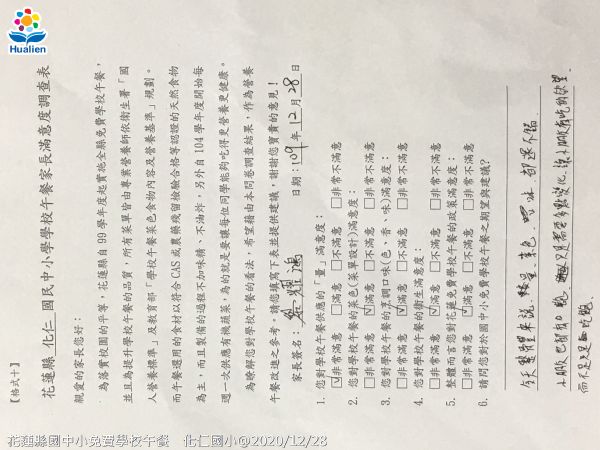 Hualien
【格式十】
花蓮縣 化仁 國民中小學學校午餐家長滿意度調查表
親愛的家長您好：
為落實校園的平等，花蓮縣自 99 學年度起實施全縣免費學校午餐，
並且為提升學校午餐的品質，所有菜單皆由專業營養師依衛生署「國
人營養標準」及教育部「學校午餐菜色食物內容及營養基準」規劃。
而午餐選用的食材以符合 CAS 或農藥殘留檢驗合格等認證的天然食物
為主，而且製備的過程不加味精、不油炸，另外自 104 學年度開始每
週一次供應有機蔬菜，為的就是要讓每位同學能夠吃得更營養更健康。
為瞭解您對學校午餐的看法，希望藉由本問卷調查結果，作為營養
午餐改進之參考，請您填寫下表並提供建議，謝謝您寶貴的意見！
家長簽名：耀鴻 日期：109年12月28日
1. 您對學校午餐供應的「量」滿意度：
☑非常滿意 □滿意 □不滿意 □非常不滿意
2. 您對學校午餐的菜色(菜單設計)滿意度：
□非常滿意 ☑滿意 □不滿意 □非常不滿意
3. 您對學校午餐的烹調口味(色、香、味)滿意度：
□非常滿意 ☑滿意 □不滿意 □非常不滿意
4. 您對學校午餐的衛生滿意度：
□非常滿意 ☑滿意 □不滿意 □非常不滿意
5. 整體而言您對花蓮免費學校午餐的政策滿意度：
□非常滿意 ☑滿意 □不滿意 □非常不滿意
6. 請問您對於國中小免費學校午餐之期望與建議？
今天整體來說，量、菜色、口味，都還不錯
小朋友也都有吃飽，只是需要多點變化，讓小朋友有吃的慾望
而不是只是吃飽。
花蓮縣國中小免費學校午餐 化仁國小@2020/12/28